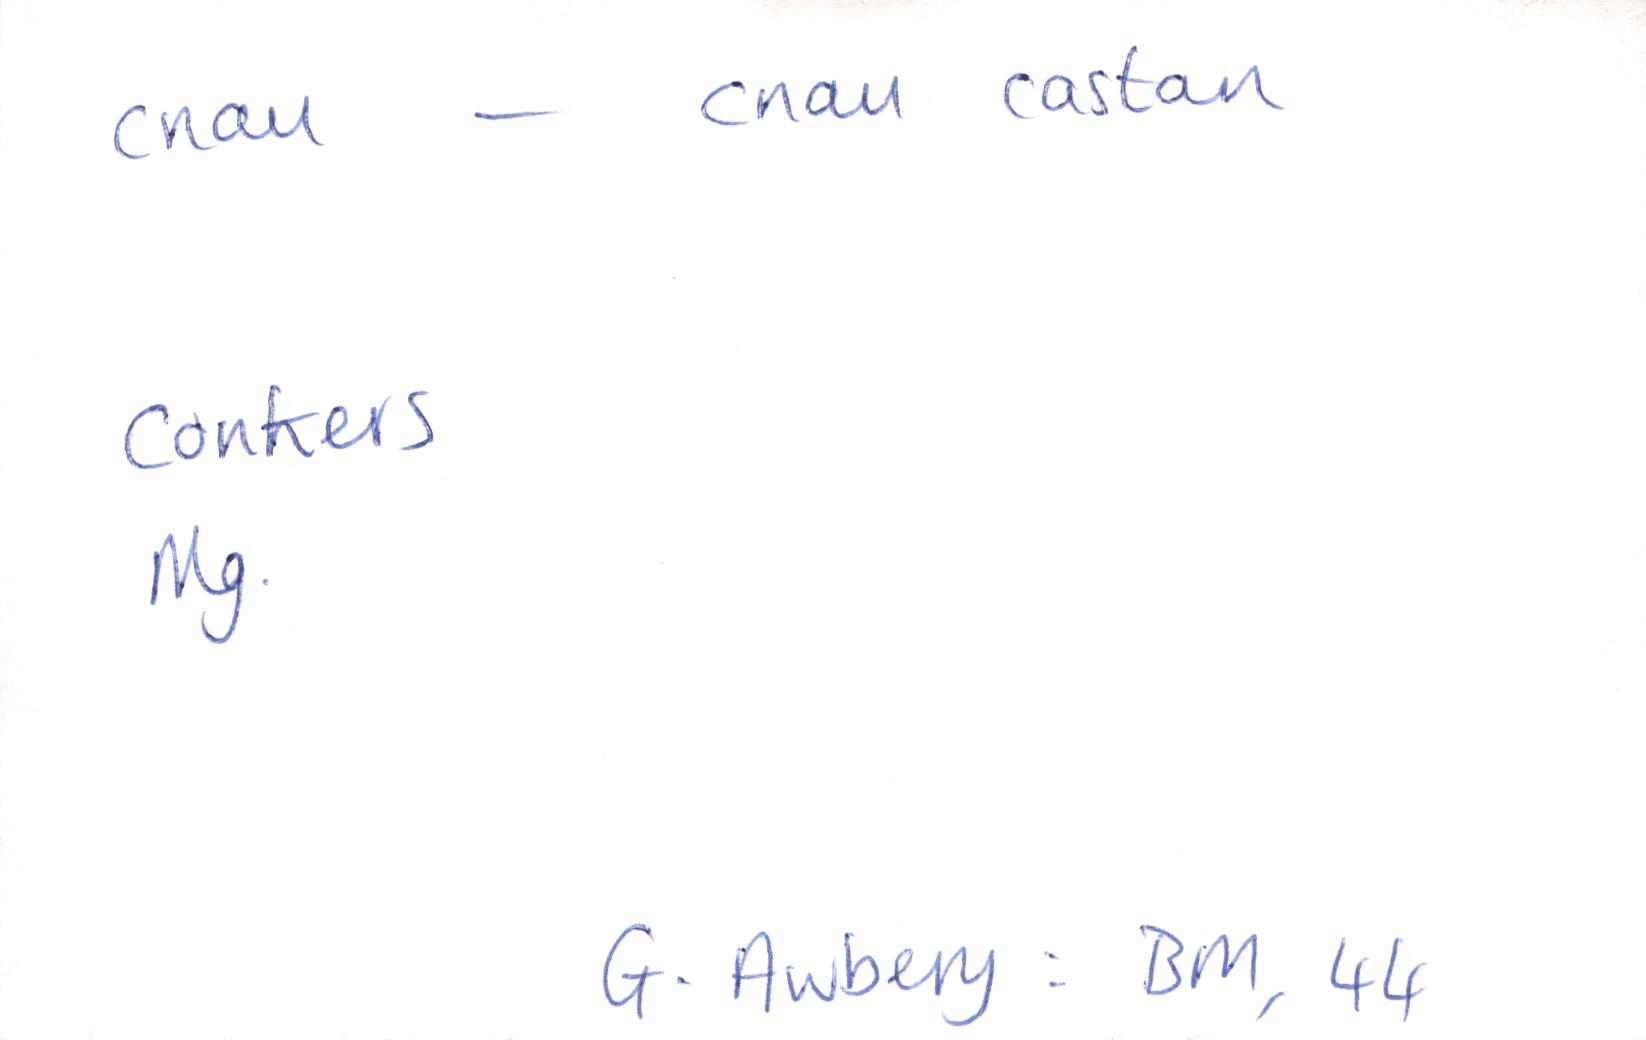 cnau — cnau castan
Conkers
Mg.
G. Awbery : BM, 44